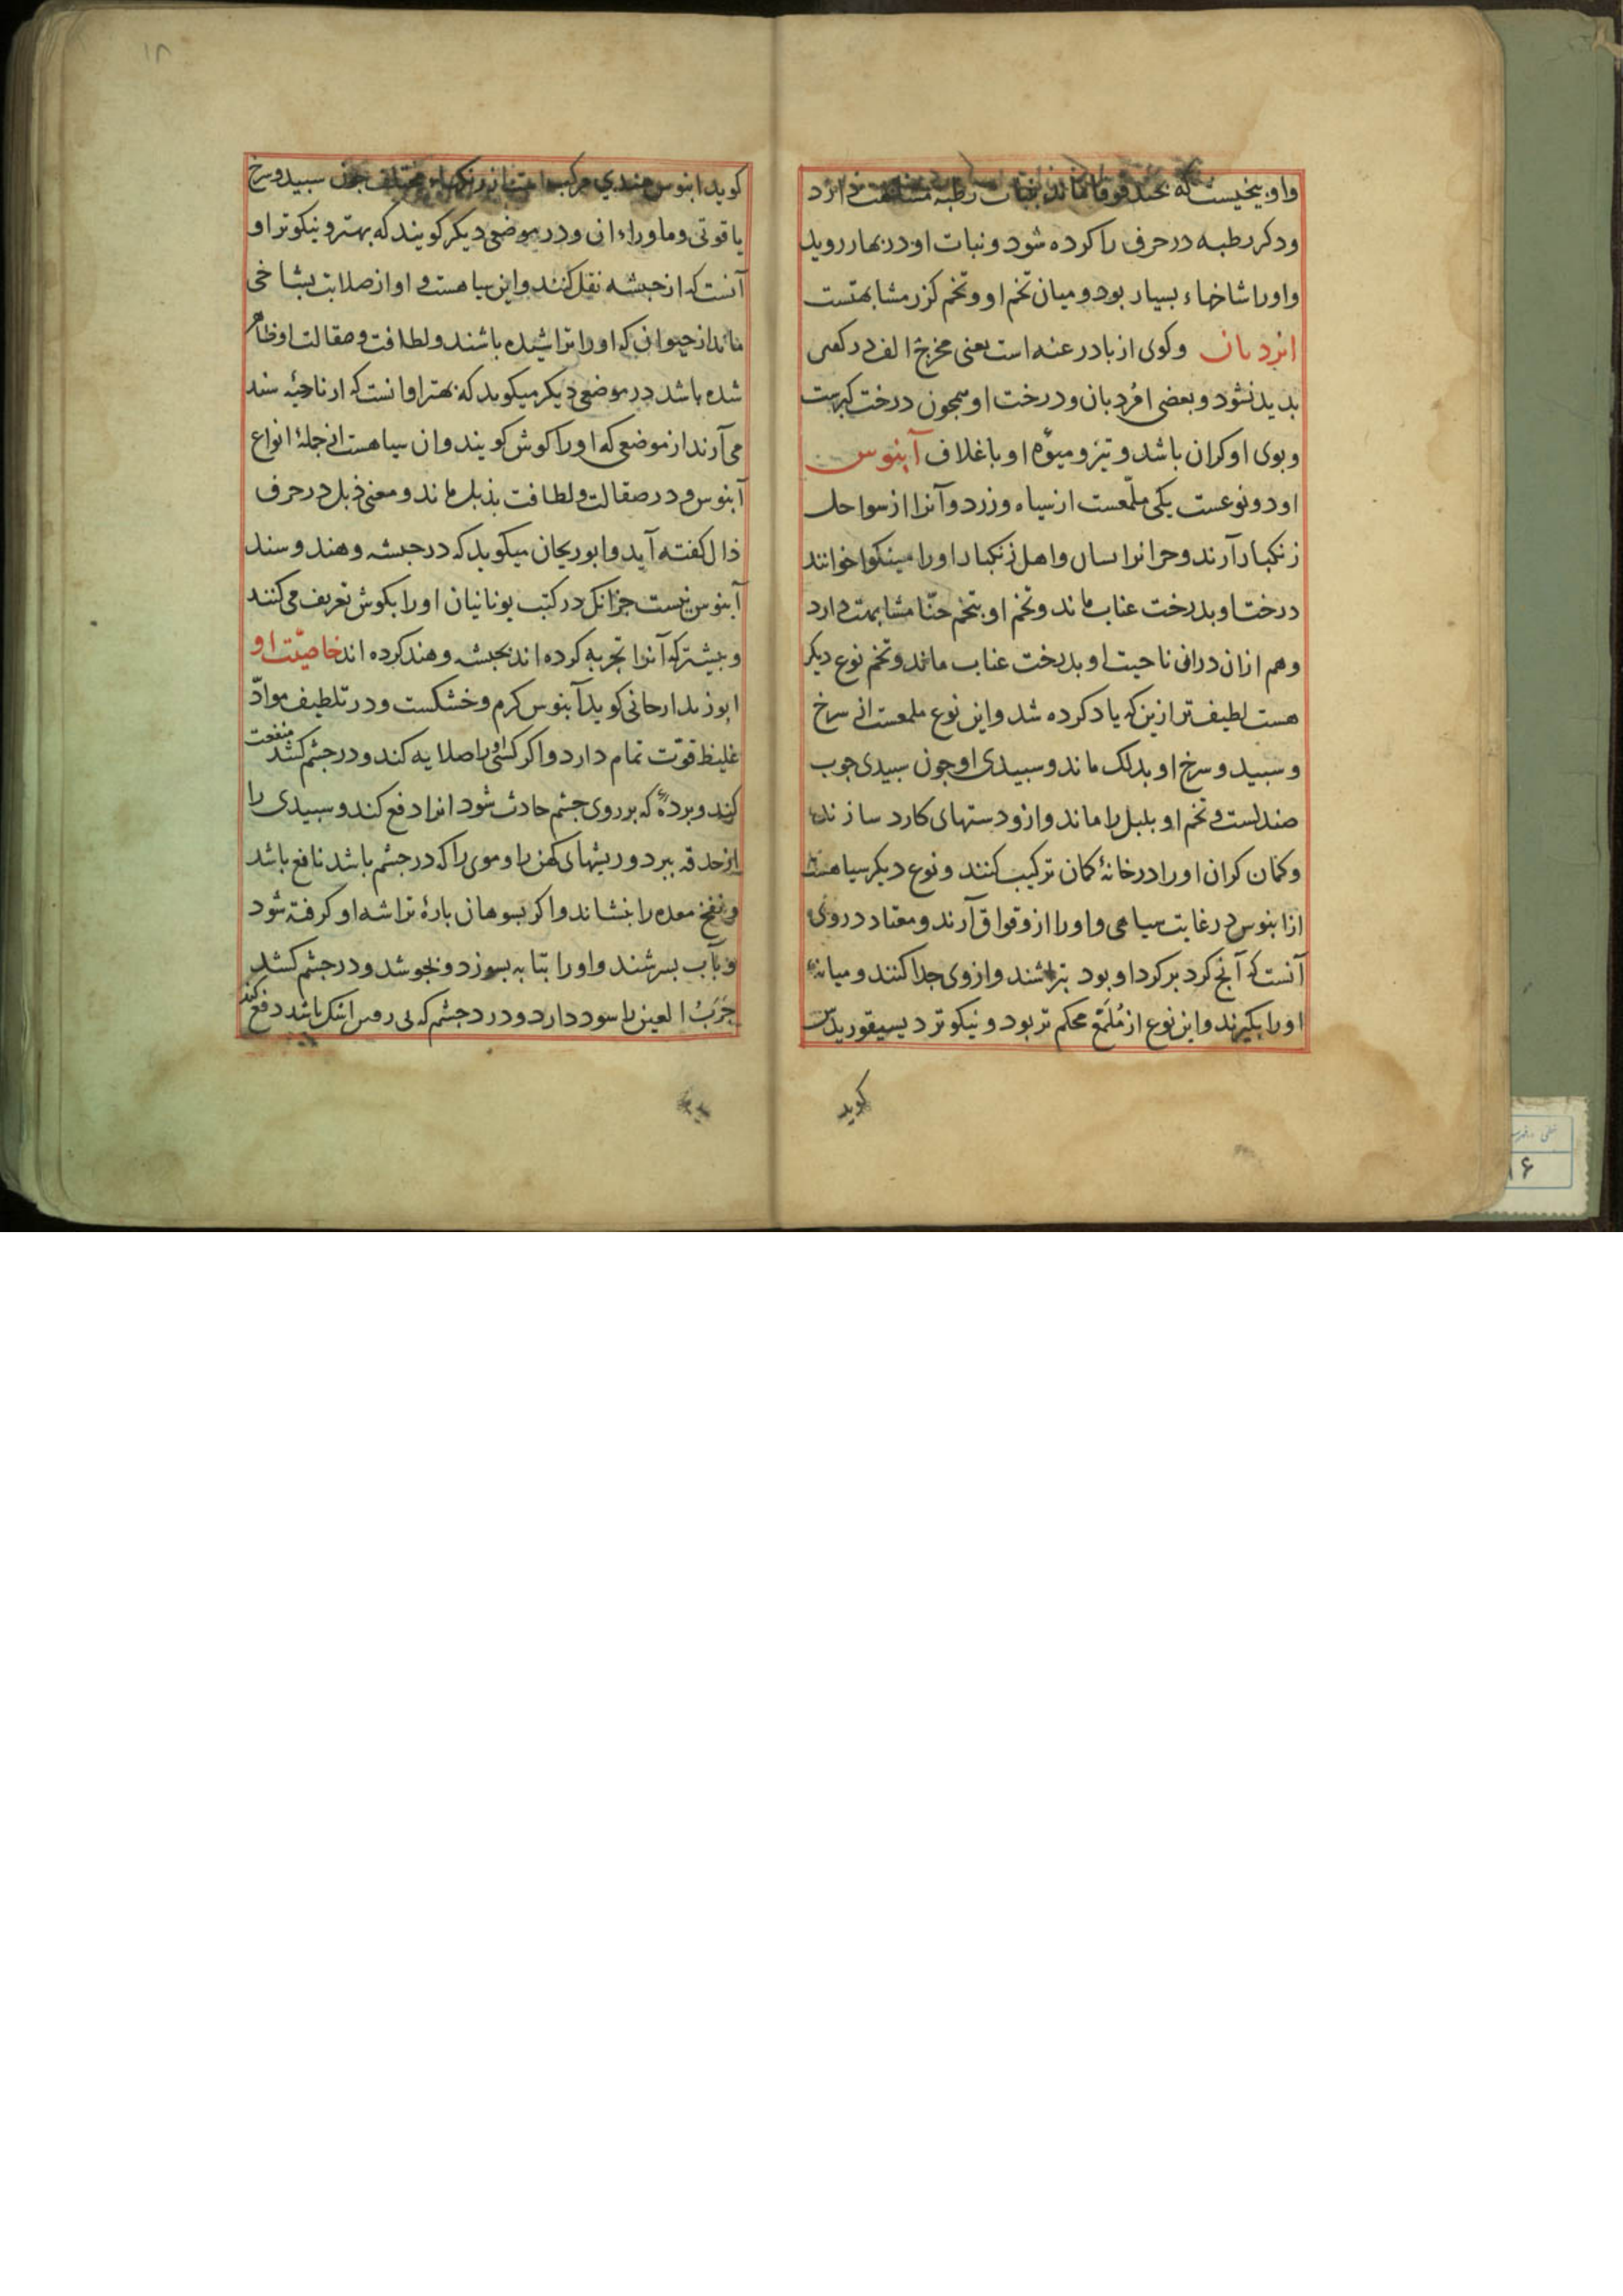 واو بیخیست که بخندقوقا ماند بنبات رطبه مشابهت دارد
وذکر رطبه در حرف را کرده شود و نبات او در بهار روید
واورا شاخهاء بسیار بود و میان تخم او و تخم کزر مشابهتست
وکوی از بادرعنه است یعنی مخرج الف در
بدید نشود و بعضی افردبان و درخت او همجون درخت کبرست
وبوی او کران باشد و تیز و میوه او با غلاف آبنوس
او دو نوعست یکی ملمعست از سیاه و زرد و آنرا از سواحل
زنکبار آرند و واهل زنکبار اورا مینکوا خوانند
درخت او بدرخت عناب ماند و تخم او بتخم حنّا مشابهت دارد
وهم ازان در ان ناحیت او بدرخت عناب ماند و تخم نوع دیکر
هست لطیفتر ازین که یاد کرده شد و این نوع ملمعست از سرخ
وسبید و سرخ او بدلک ماند و سبیدی او جون سبیدی جوب
صندلست و تخم او بلبل را ماند و ازو دستهای کارد سازند
وکمان کران اورا در خانهٔ کمان ترکیب کنند و نوع دیکر سیاهست
از ابنوس در غایت سیاهی و اورا از وقواق آرند و معتاد در وی
آنست که آنج کرد بر کرد او بود بتراشند و ازوی جدا کنند و میانه
اورا بکیرند و این نوع از مُلَمَّع محکم تر بود و نیکوتر دیسیقوریدس
کوید
۱۸
کوید ابنوس هندی مرکب است از رنکهاء مختلف جون سبید و سرخ
یاقوتی و ماوراء ان و در موضعی دیکر کویند که بهتر و نیکوتر او
آنست که از حبشه نقل کنند و این سیاهست و او از صلابت بشاخی
ماند از حیوان که اورا تراشیده باشند و لطافت و صقالت او ظاهر
شده باشد در موضعی دیکر میکوید که بهتر او انست که از ناحیهٔ سند
می آرند از موضعی که اورا کوش کویند و ان سیاهست از جملهٔ انواع
آبنوس و در صقالت و لطافت بذبل ماند و معنی ذبل در حرف
ذال کفته آید و ابوریحان میکوید که در حبشه و هند و سند
آبنوس نیست جز انک در کتب یونانیان اورا بکوش تعریف می کنند
و بیشتر که آنرا تجربه کرده اند بحبشه و هند کرده اند خاصیّت او
ابوزید ارجانی کوید آبنوس کرم و خشکست و در تلطیف موادّ
غلیظ قوّت تمام دارد و اکر کسی اورا صلایه کند و در جشم کشد منفعت
کند و بردهٔ که بر روی جشم حادث شود انرا دفع کند و سبیدی را
از حدقه ببرد و ریشهای کهن را و موی را که در جشم باشد نافع باشد
و نفخ معده را بنشاند و اکر بسوهان بارهٔ تراشه او کرفته شود
و بآب بسرشند و اورا بتابه بسوزد و بجوشد و در جشم کشد
جَرَبُ العین را سود دارد و درد جشم که بی اشک باشد دفع کند